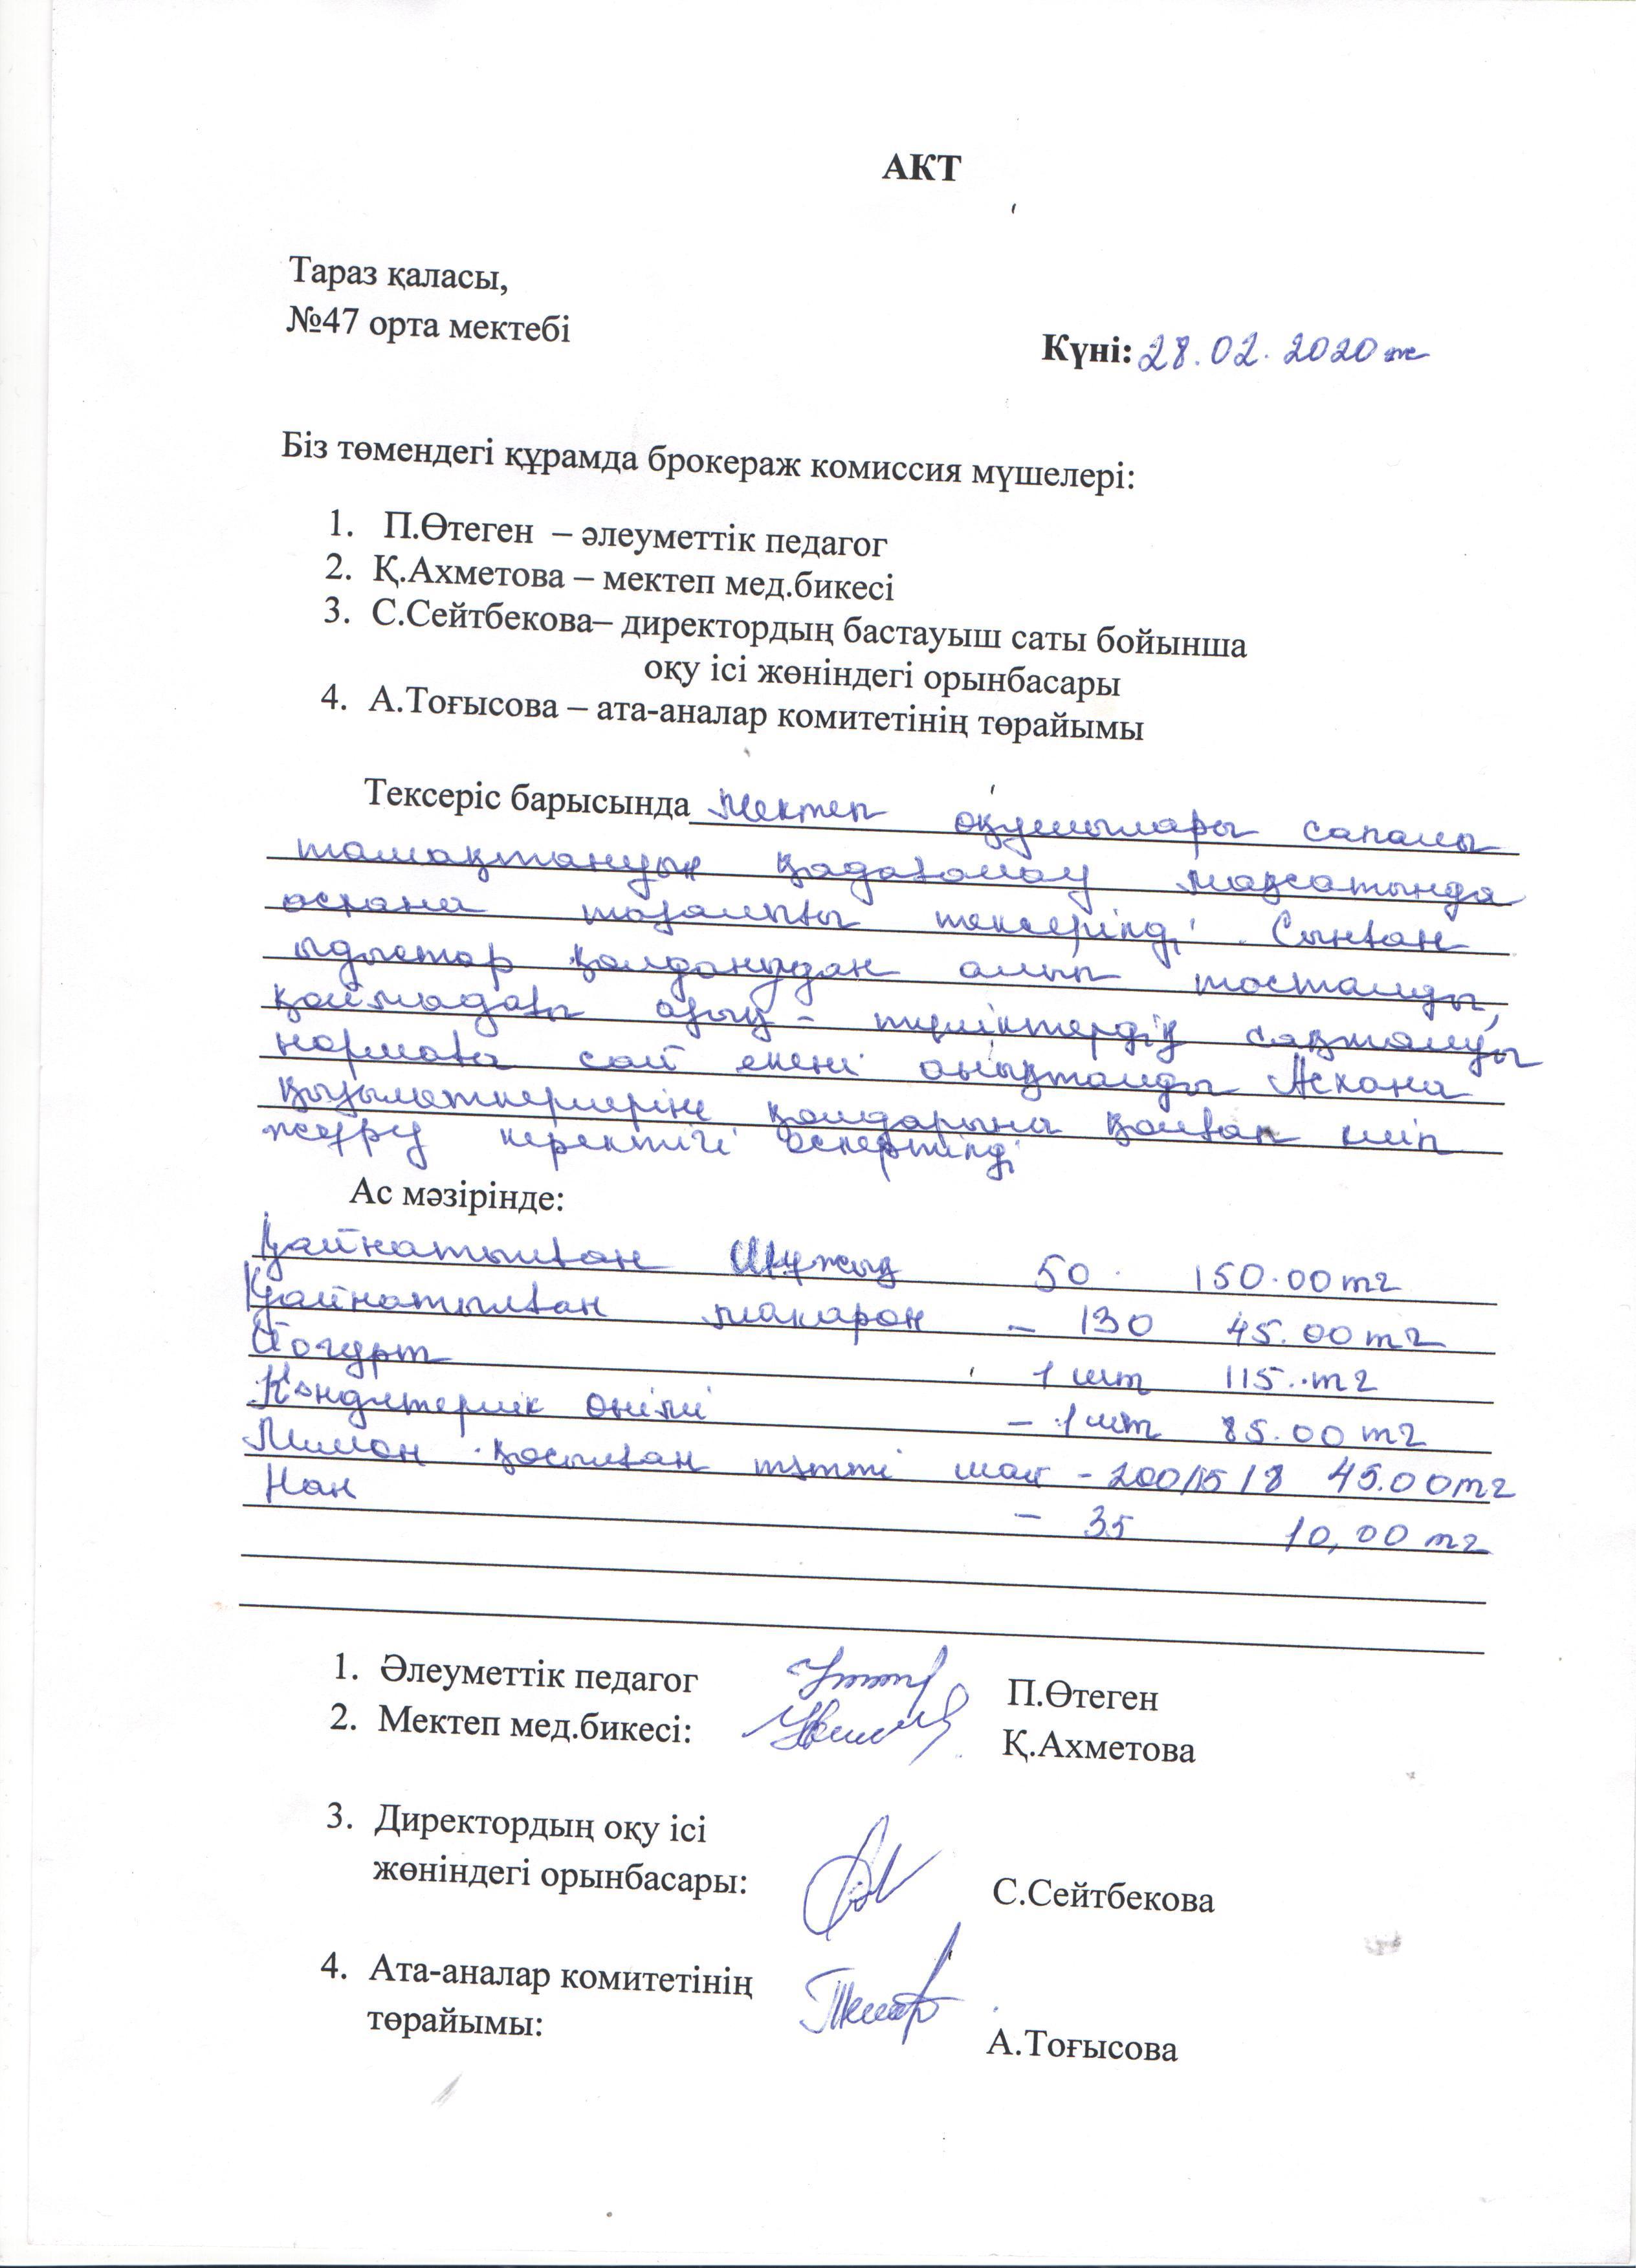 АКТ
Тараз қаласы,
№47 орта мектебі
Күні: 28.02.2020ж
Біз төмендегі құрамда брокераж комиссия мүшелері:
1. П.Өтеген – әлеуметтік педагог
2. Қ.Ахметова – мектеп мед.бикесі
3. С.Сейтбекова– директордың бастауыш саты бойынша
оқу ісі жөніндегі орынбасары
4. А.Тоғысова – ата-аналар комитетінің төрайымы
Тексеріс барысында Мектеп оқушылары сапалы
тамақтануын қадағалау мақсатында
асхана тазалығы тексерілді. Сынған
ыдыстар қолданудан алып тасталды,
қоймадағы азық - түліктердің сақталуы
нормаға сай екені анықталды Асхана
қызыметкерлеріне қолдарына қолғап киіп
жүру керектігі ескертілді
Ас мәзірінде:
Қайнатылған Шұжық 50 150.00тг
Қайнатылған макарон – 130 45.00тг
Йогурт 1 шт 115..тг
Кондитерлік өнімі – 1шт 85.00тг
Лимон қосылған тәтті шай - 200/15/8 45.00тг
Нан – 35 10,00тг
1. Әлеуметтік педагог П.Өтеген
2. Мектеп мед.бикесі: Қ.Ахметова
3. Директордың оқу ісі
жөніндегі орынбасары: С.Сейтбекова
4. Ата-аналар комитетінің
төрайымы:
А.Тоғысова